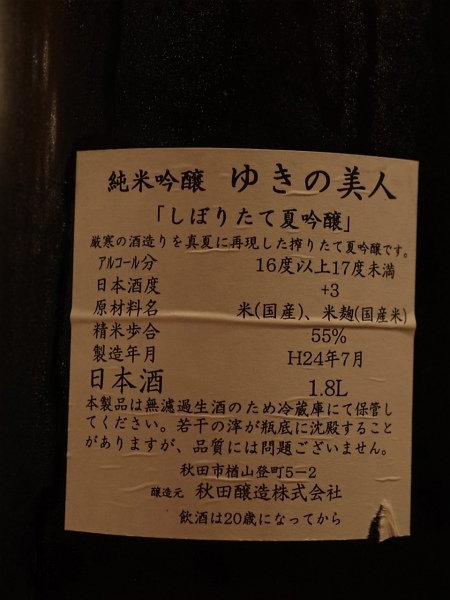 純米吟醸 ゆきの美人
「しぼりたて夏吟醸」
厳寒の酒造りを真夏に再現した搾りたて夏吟醸です。
アルコール分 16度以上17度未満
日本酒度 +3
原材料名 米(国産)、米麹(国産米)
精米歩合 55%
製造年月 H24年7月
日本酒 1.8L
本製品は無濾過生酒のため冷蔵庫にて保管し
てください。若干の滓が瓶底に沈殿すること
がありますが、品質には問題ございません。
秋田市楢山登町5-2
醸造元 秋田醸造株式会社
飲酒は20歳になってから